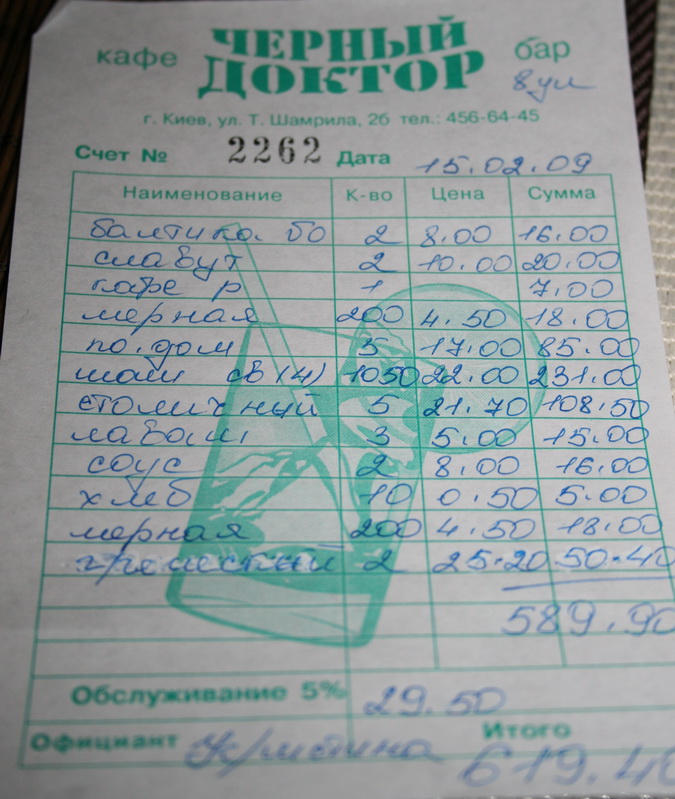 кафе ЧЕРНЫЙ ДОКТОР бар
8 ул
г. Киев, ул. Т. Шамрила, 2б тел.: 456-64-45
Счет № 2262 Дата 15.02.09
Наименование К-во Цена Сумма
балтика бо 2 8.00 16.00
славут 2 10.00 20.00
кофе р 1 7.00
мерная 200 4.50 18.00
по.дом 5 17.00 85.00
шаш св (4) 1050 22.00 231.00
столичный 5 21.70 108.50
лаваш 3 5.00 15.00
соус 2 8.00 16.00
хлеб 10 0.50 5.00
мерная 200 4.50 18.00
2 25.20 50.40
589.90
Обслуживание 5% 29.50
Итого
Официант Кристина 619.40